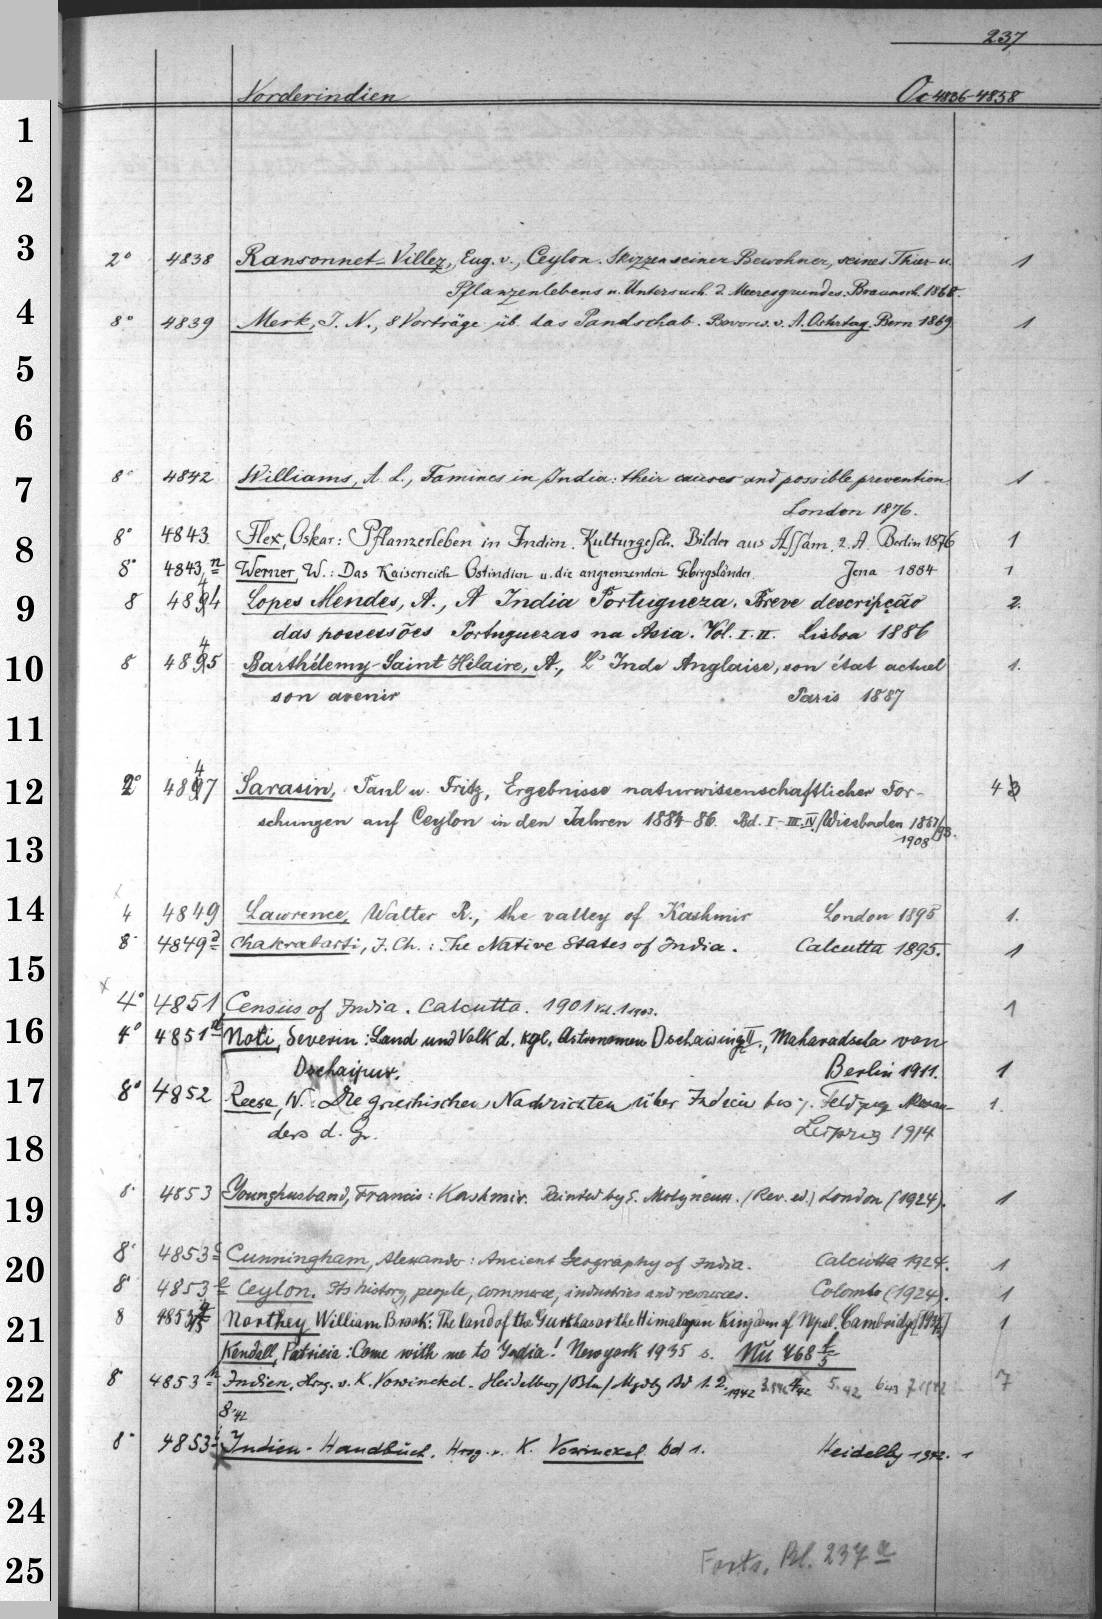 237
Vorderindien Oc 4836-4858
1
2
3
2° 4838 Ransonnet-Villez, Eug. v., Ceylon. Skizzen seiner Bewohner, seines Thier- u. 1
Pflanzenlebens u. Untersuch. d. Meeresgrundes. Braunsch. 1868.
4
8° 4839 Merk, J. N., 8 Vorträge üb. das Pandschab. Bevorw. v. A. Ostertag. Bern 1869 1
5
6
7
8° 4842 Williams, A. L., Famines in India: their causes and possible prevention 1
London 1876.
8
8° 4843 Flex, Oskar: Pflanzerleben in Indien. Kulturgesch. Bilder aus Assam. 2. A. Berlin 1876 1
8° 4843 n Werner, W.: Das Kaiserreich Ostindien u. die angrenzenden Gebirgsländer. Jena 1884 1
9
8 4844 Lopes Mendes, A., A India Portugueza. Breve descripção 2.
das possessões Portuguezas na Asia. Vol. I. II. Lisboa 1886
10
8 4845 Barthélemy-Saint Hilaire, A., L'Inde Anglaise, son état actuel 1.
son avenir Paris 1887
11
12
2° 4847 Sarasin, Paul u. Fritz, Ergebnisse naturwissenschaftlicher For- 4 3
schungen auf Ceylon in den Jahren 1884-86. Bd. I-III. IV Wiesbaden 1887/93.
1908
13
14
4 4849 Lawrence, Walter R., the valley of Kashmir London 1895 1.
8° 4849 a Chakrabarti, J. Ch.: The Native States of India. Calcutta 1895. 1
15
4° 4851 Census of India. Calcutta. 1901 Vol. 1 1903. 1
16
4° 4851 n Noti, Severin: Land und Volk d. kgl. Astronomen Dschaising II., Maharadscha von
Dschaipur. Berlin 1911. 1
17
8° 4852 Reese, W.: Die griechischen Nachrichten über Indien bis z. Feldzug Alexan- 1.
ders d. Gr. Leipzig 1914
18
19
8° 4853 Younghusband, Francis: Kashmir. Painted by E. Molyneux. (Rev. ed.) London (1924). 1
20
8° 4853 c Cunningham, Alexander: Ancient Geography of India. Calcutta 1924. 1
8° 4853 e Ceylon. Its history, people, commerce, industries and resources. Colombo (1924). 1
21
8 4853 g/5 Northey, William Brook: The land of the Gurkhas or the Himalayan Kingdom of Nepal. Cambridge [1937] 1
Kendall, Patricia: Come with me to India! New York 1935 s. Nu 468 f/5
22
8° 4853 h Indien, Hrsg. v. K. Vowinckel. Heidelberg/Bln/Mgdbg Bd 1. 2. 1942 3. 1942 4/42 5. 42 6 43 7 1942 7
8. 42
23
8° 4853 i Indien-Handbuch. Hrsg. v. K. Vowinckel bd 1. Heidelbg 1942. 1
24
25
Forts. Bl. 237 a